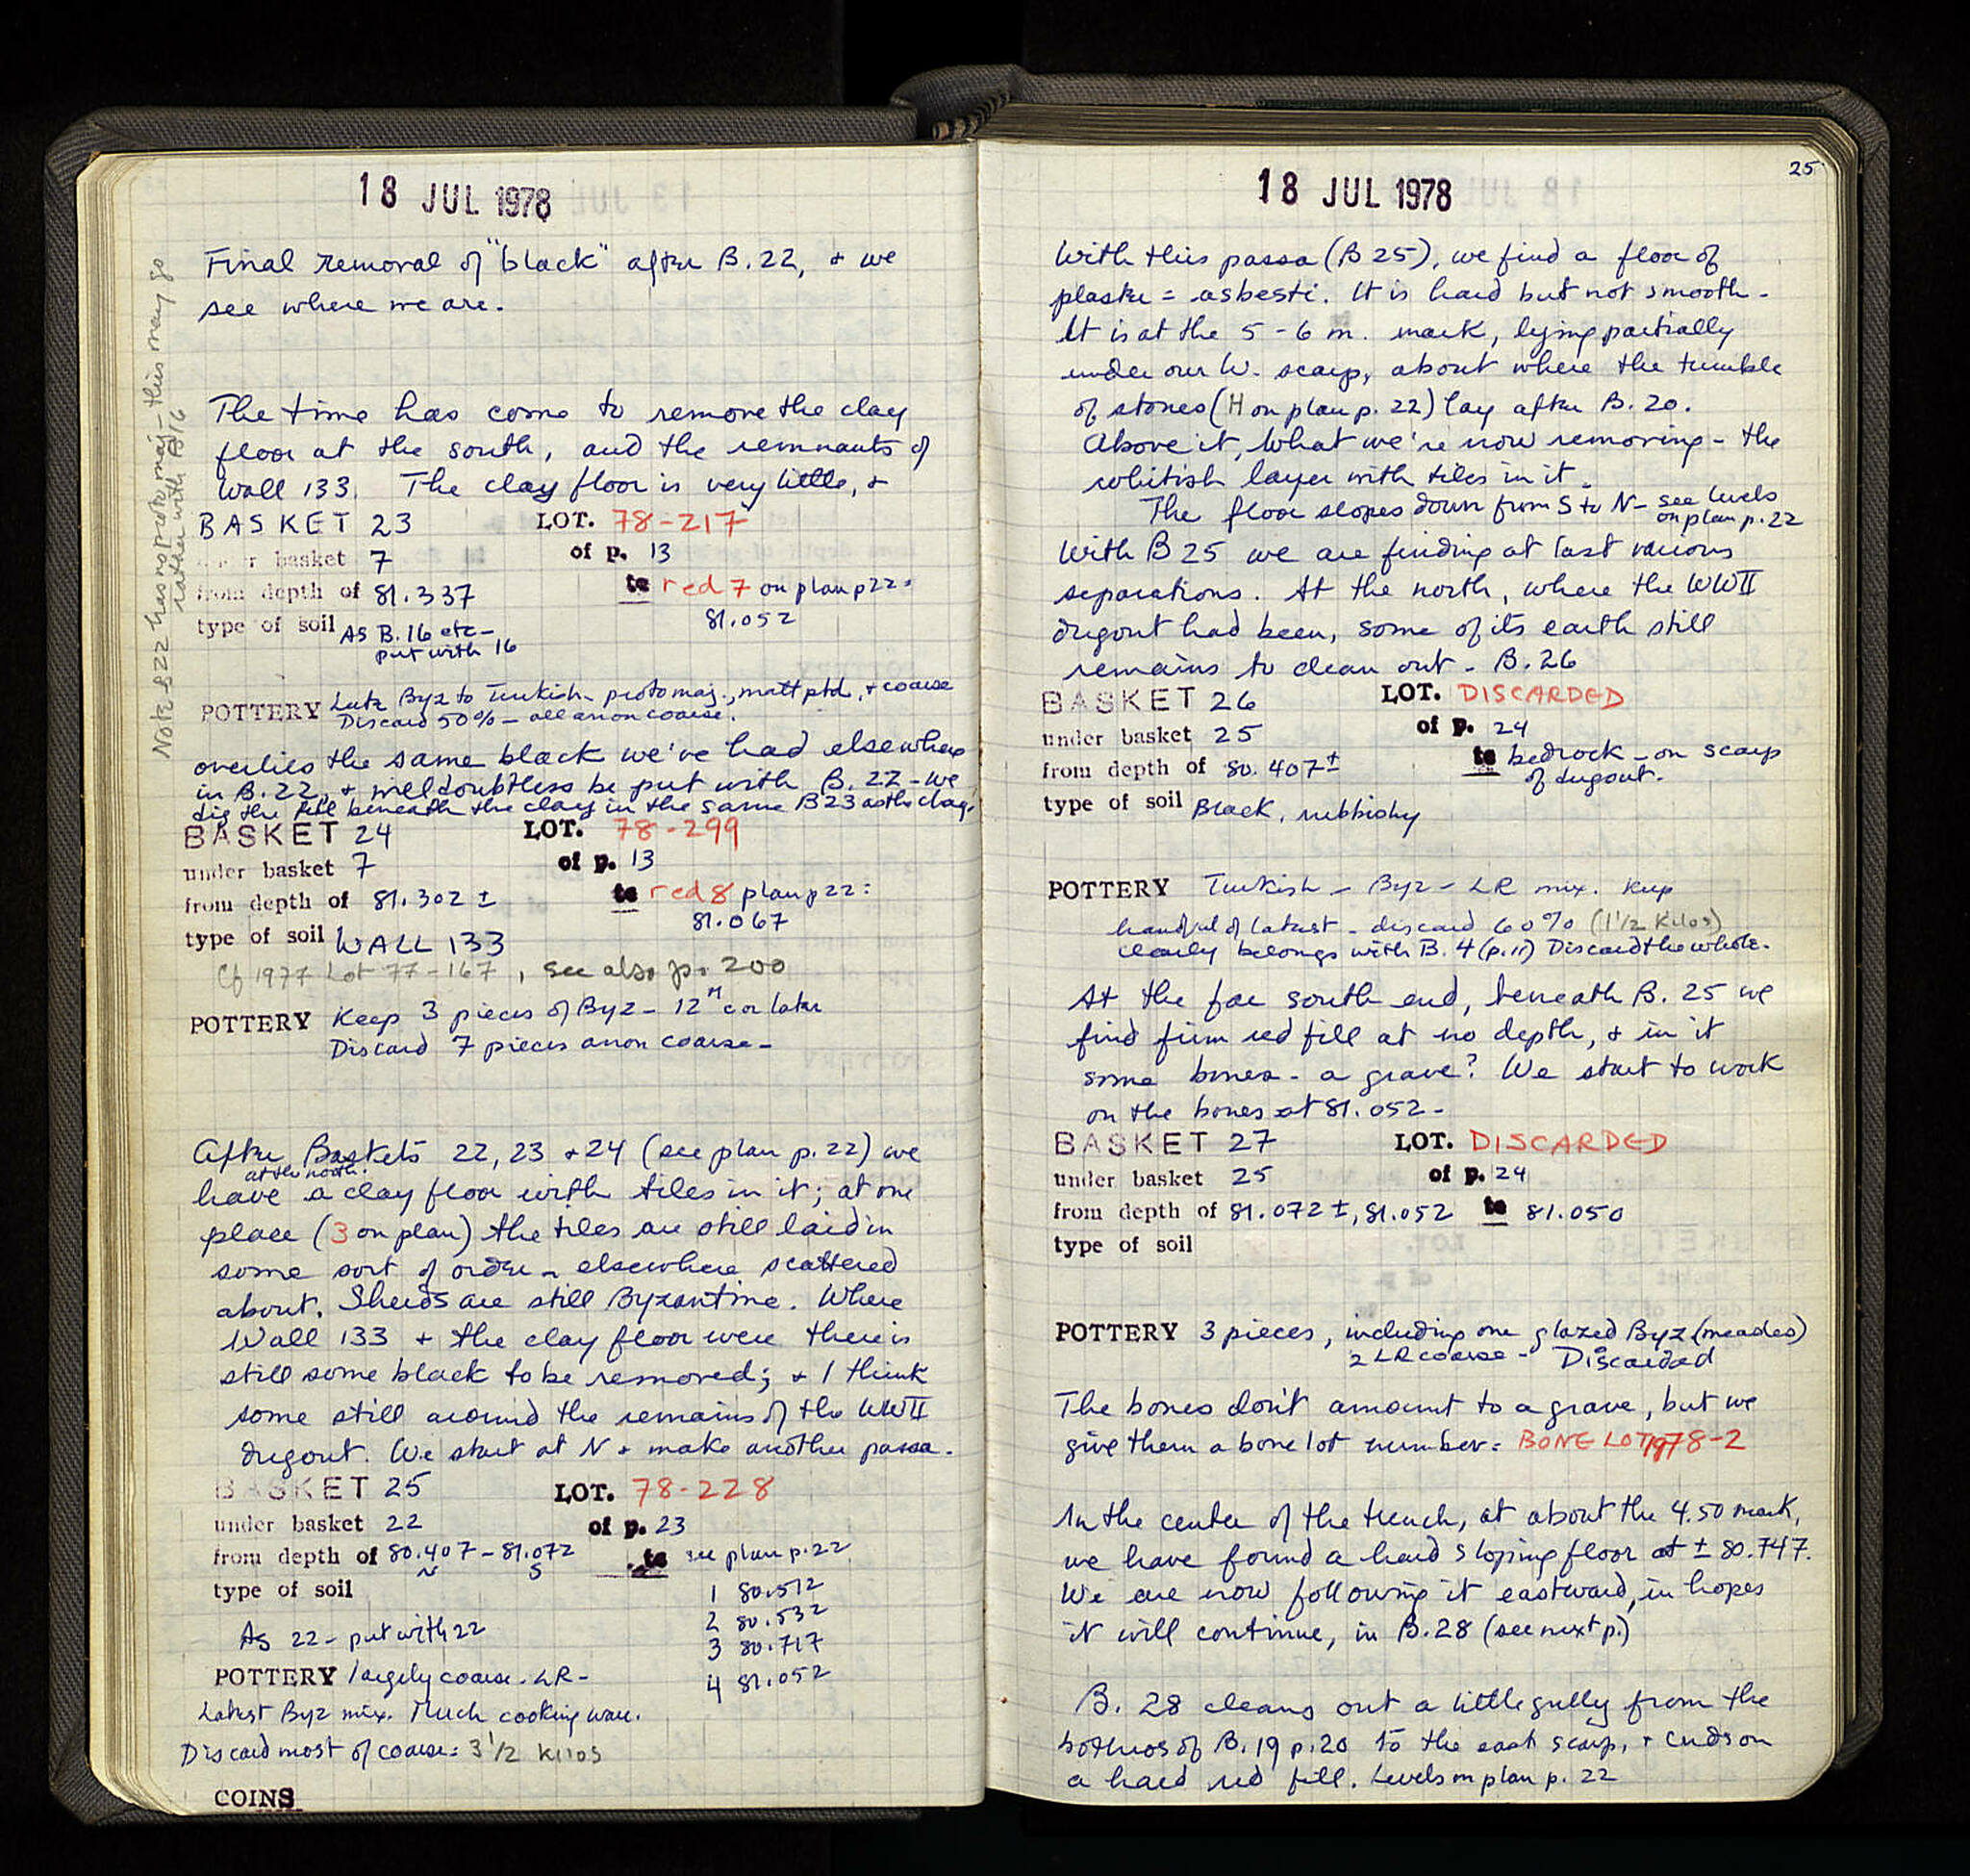 18 JUL 1978
Final removal of "black" after B.22, + we
see where we are.
Note B22 has no protomaj - this may go
rather with B16
The time has come to remove the clay
floor at the south, and the remnants of
Wall 133. The clay floor is very little, +
BASKET 23 LOT. 78-217
under basket 7 of p. 13
from depth of 81.337 to red 7 on plan p 22 =
81.052
type of soil As B.16 etc -
put with 16
POTTERY Late Byz to Turkish - protomaj., matt ptd, + coarse
Discard 50% - all anon coarse.
overlies the same black we've had elsewhere
in B.22, + will doubtless be put with B.22 - we
dig the fill beneath the clay in the same B23 as the clay.
BASKET 24 LOT. 78-299
under basket 7 of p. 13
from depth of 81.302 ± to red 8 plan p 22:
81.067
type of soil WALL 133
Cf 1977 Lot 77-167, see also p. 200
POTTERY Keep 3 pieces of Byz - 12th c or later
Discard 7 pieces anon coarse -
After Baskets 22, 23 + 24 (see plan p. 22) we
at the north.
have a clay floor with tiles in it; at one
place (3 on plan) the tiles are still laid in
some sort of order - elsewhere scattered
about. Sherds are still Byzantine. Where
Wall 133 + the clay floor were there is
still some black to be removed; + I think
some still around the remains of the WWII
dugout. We start at N + make another passa.
BASKET 25 LOT. 78-228
under basket 22 of p. 23
from depth of 80.407 - 81.072 to see plan p.22
N S
type of soil 1 80.512
2 80.532
As 22 - put with 22 3 80.717
POTTERY largely coarse. LR - 4 81.052
Latest Byz mix. Much cooking ware.
Discard most of coarse: 3 1/2 kilos
COINS
25
18 JUL 1978
With this passa (B 25), we find a floor of
plaster = asbesti. It is hard but not smooth -
It is at the 5-6 m. mark, lying partially
under our W. scarp, about where the tumble
of stones (H on plan p. 22) lay after B. 20.
Above it, what we're now removing - the
whitish layer with tiles in it.
The floor slopes down from S to N - see levels
on plan p. 22
With B 25 we are finding at last various
separations. At the north, where the WWII
dugout had been, some of its earth still
remains to clean out - B. 26
BASKET 26 LOT. DISCARDED
under basket 25 of p. 24
from depth of 80.407± to bedrock - on scarp
of dugout.
type of soil Black, rubbishy
POTTERY Turkish - Byz - LR mix. Keep
handful of latest - discard 60% (1 1/2 Kilos)
clearly belongs with B. 4 (p. 11) Discard the whole.
At the far south end, beneath B. 25 we
find firm red fill at no depth, + in it
some bones - a grave? We start to work
on the bones at 81.052 -
BASKET 27 LOT. DISCARDED
under basket 25 of p. 24
from depth of 81.072 ±, 81.052 to 81.050
type of soil
POTTERY 3 pieces, including one glazed Byz (measles)
2 LR coarse - Discarded
The bones don't amount to a grave, but we
give them a bone lot number: BONE LOT 1978-2
In the center of the trench, at about the 4.50 mark,
we have found a hard sloping floor at ± 80.747.
We are now following it eastward, in hopes
it will continue, in B. 28 (see next p.)
B. 28 cleans out a little gully from the
bothros of B. 19 p. 20 to the east scarp, + ends on
a hard red fill. Levels on plan p. 22